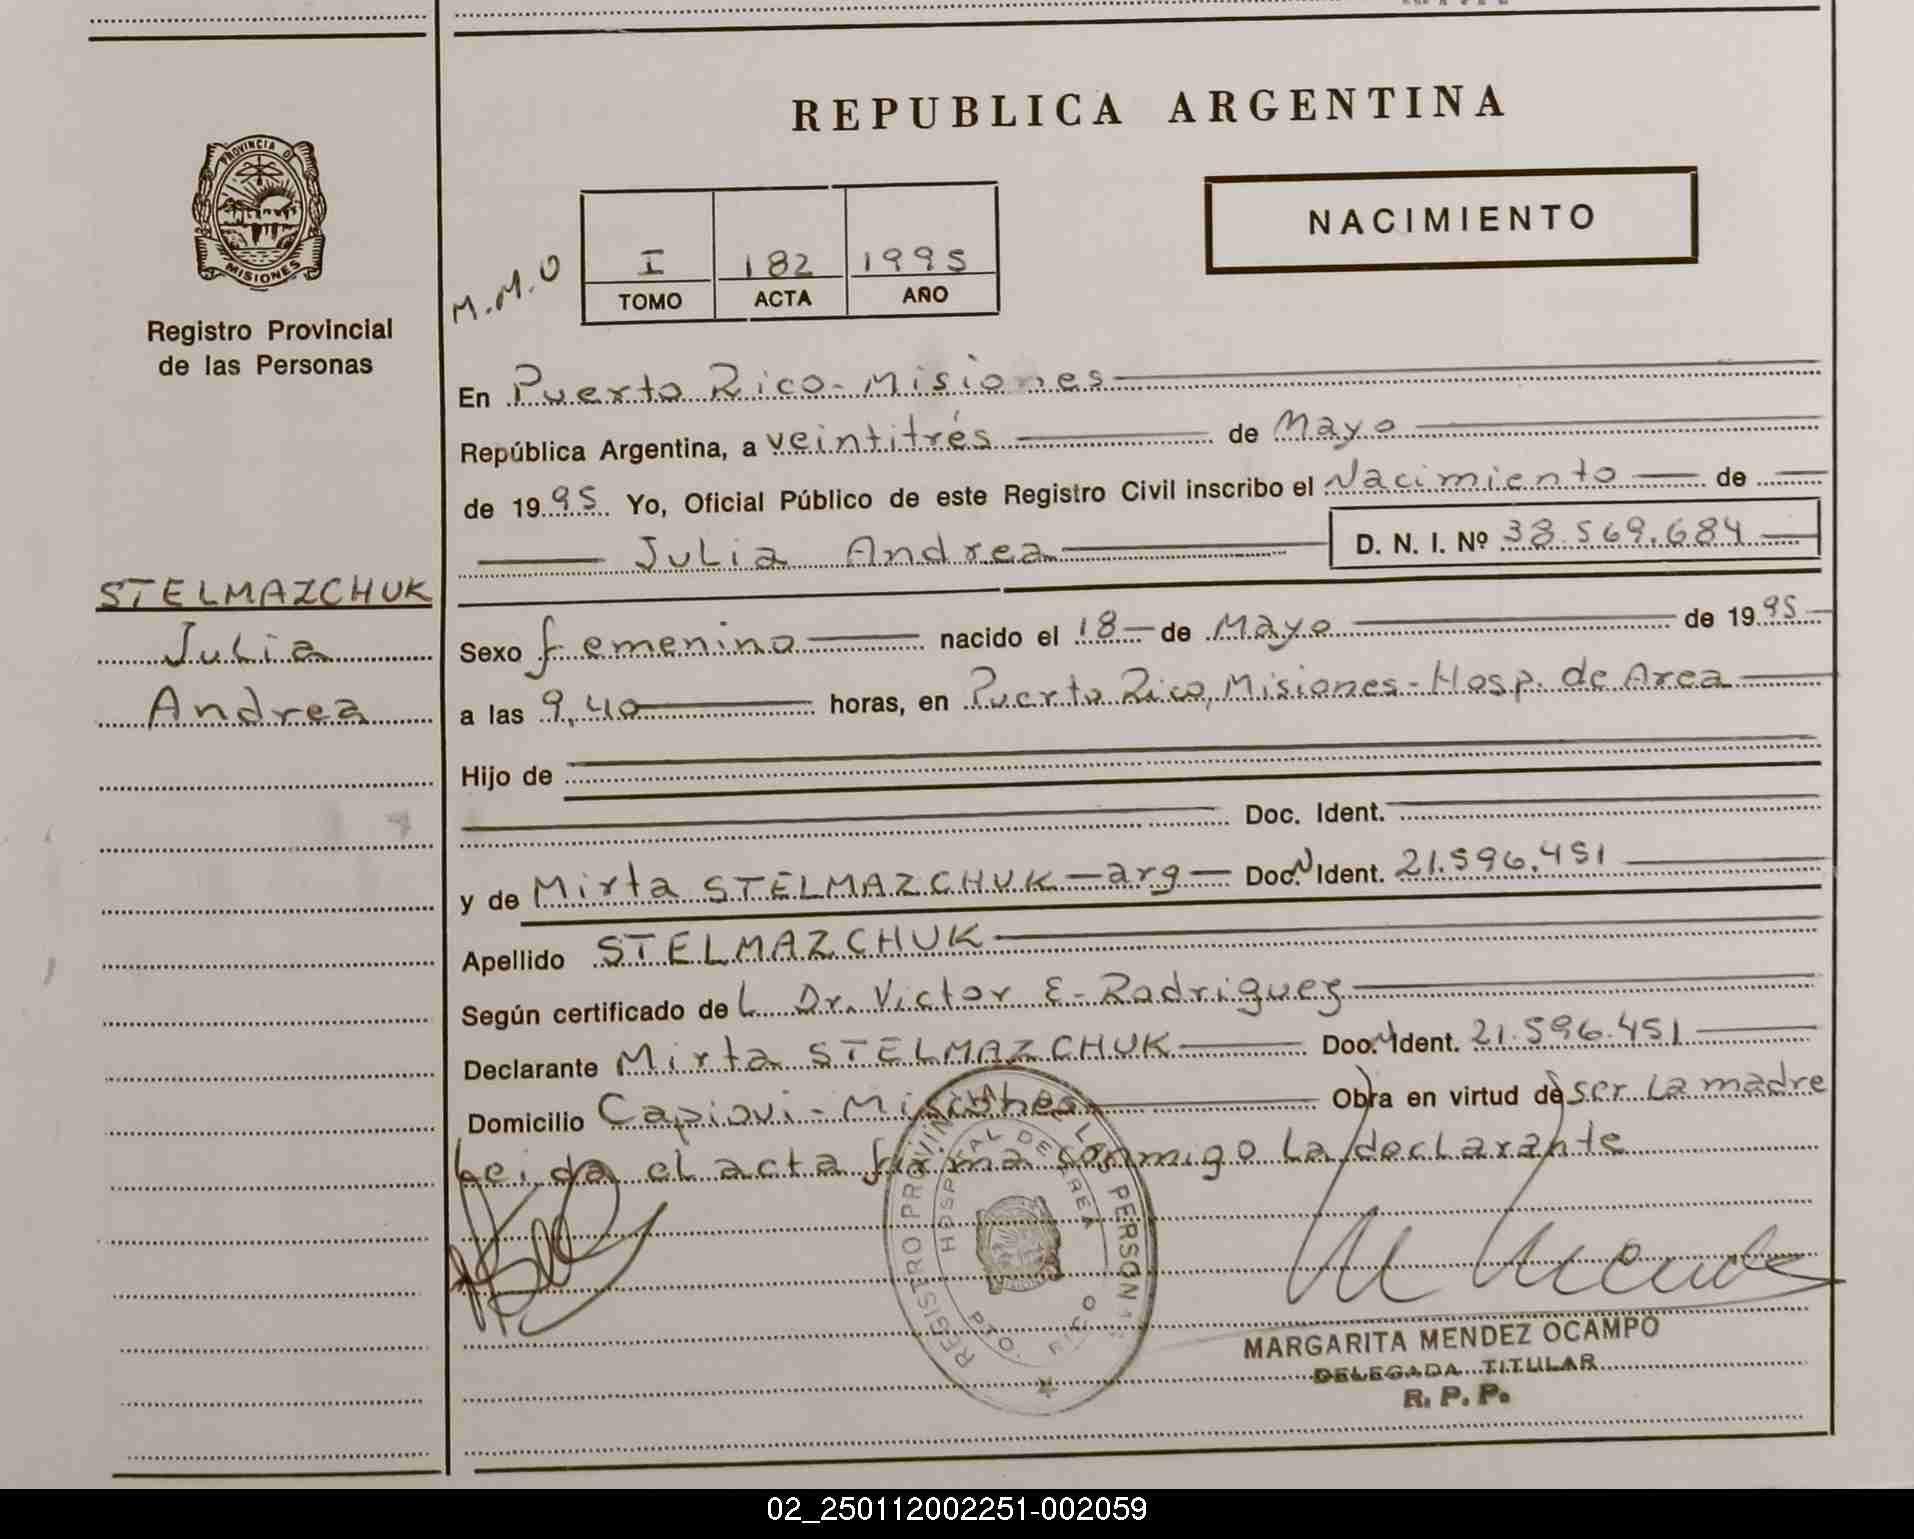 REPUBLICA ARGENTINA
PROVINCIA DE
MISIONES
Registro Provincial
de las Personas
NACIMIENTO
M.M.O
I 182 1995
TOMO ACTA AÑO
En Puerto Rico - Misiones
República Argentina, a veintitrés de Mayo
de 1995 Yo, Oficial Público de este Registro Civil inscribo el Nacimiento de
Julia Andrea D. N. I. Nº 38.569.684
STELMAZCHUK
Julia
Andrea
Sexo femenino nacido el 18 de Mayo de 1995
a las 9,40 horas, en Puerto Rico, Misiones - Hosp. de Area
Hijo de
Doc. Ident.
y de Mirta STELMAZCHUK - arg - Doc. N Ident. 21.596.451
Apellido STELMAZCHUK
Según certificado de L Dr. Victor E. Rodriguez
Declarante Mirta STELMAZCHUK Doc. N Ident. 21.596.451
Domicilio Capiovi - Misiones Obra en virtud de ser La madre
Leida el acta firma conmigo La declarante
REGISTRO PROVINCIAL DE LAS PERSONAS
HOSPITAL DE AREA
PTO. RICO
MARGARITA MENDEZ OCAMPO
DELEGADA TITULAR
R. P. P.
02_250112002251-002059